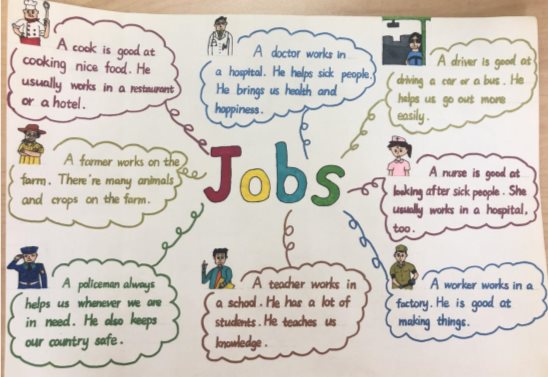 A cook is good at
cooking nice food. He
usually works in a restaurant
or a hotel.
A doctor works in
a hospital. He helps sick people.
He brings us health and
happiness.
A driver is good at
driving a car or a bus. He
helps us go out more
easily.
A farmer works on the
farm. There're many animals
and crops on the farm.
Jobs
A nurse is good at
looking after sick people. She
usually works in a hospital,
too.
A policeman always
helps us whenever we are
in need. He also keeps
our country safe.
A teacher works in
a school. He has a lot of
students. He teaches us
knowledge.
A worker works in a
factory. He is good at
making things.